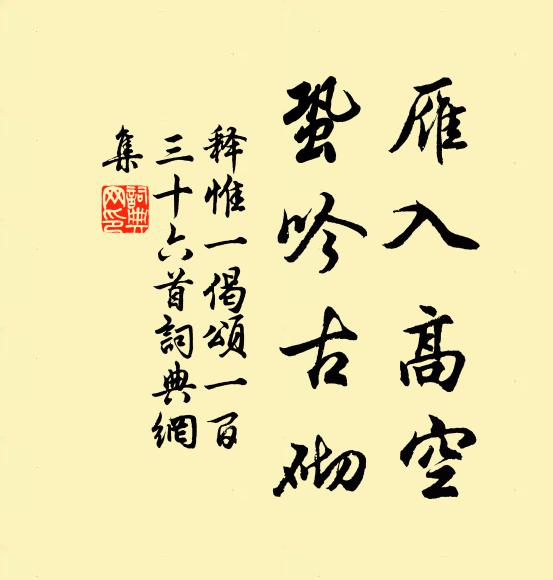 雁入高空
蛩吟古砌
释惟一偈頌一百
三十六首詞典網
集
詞典
网印